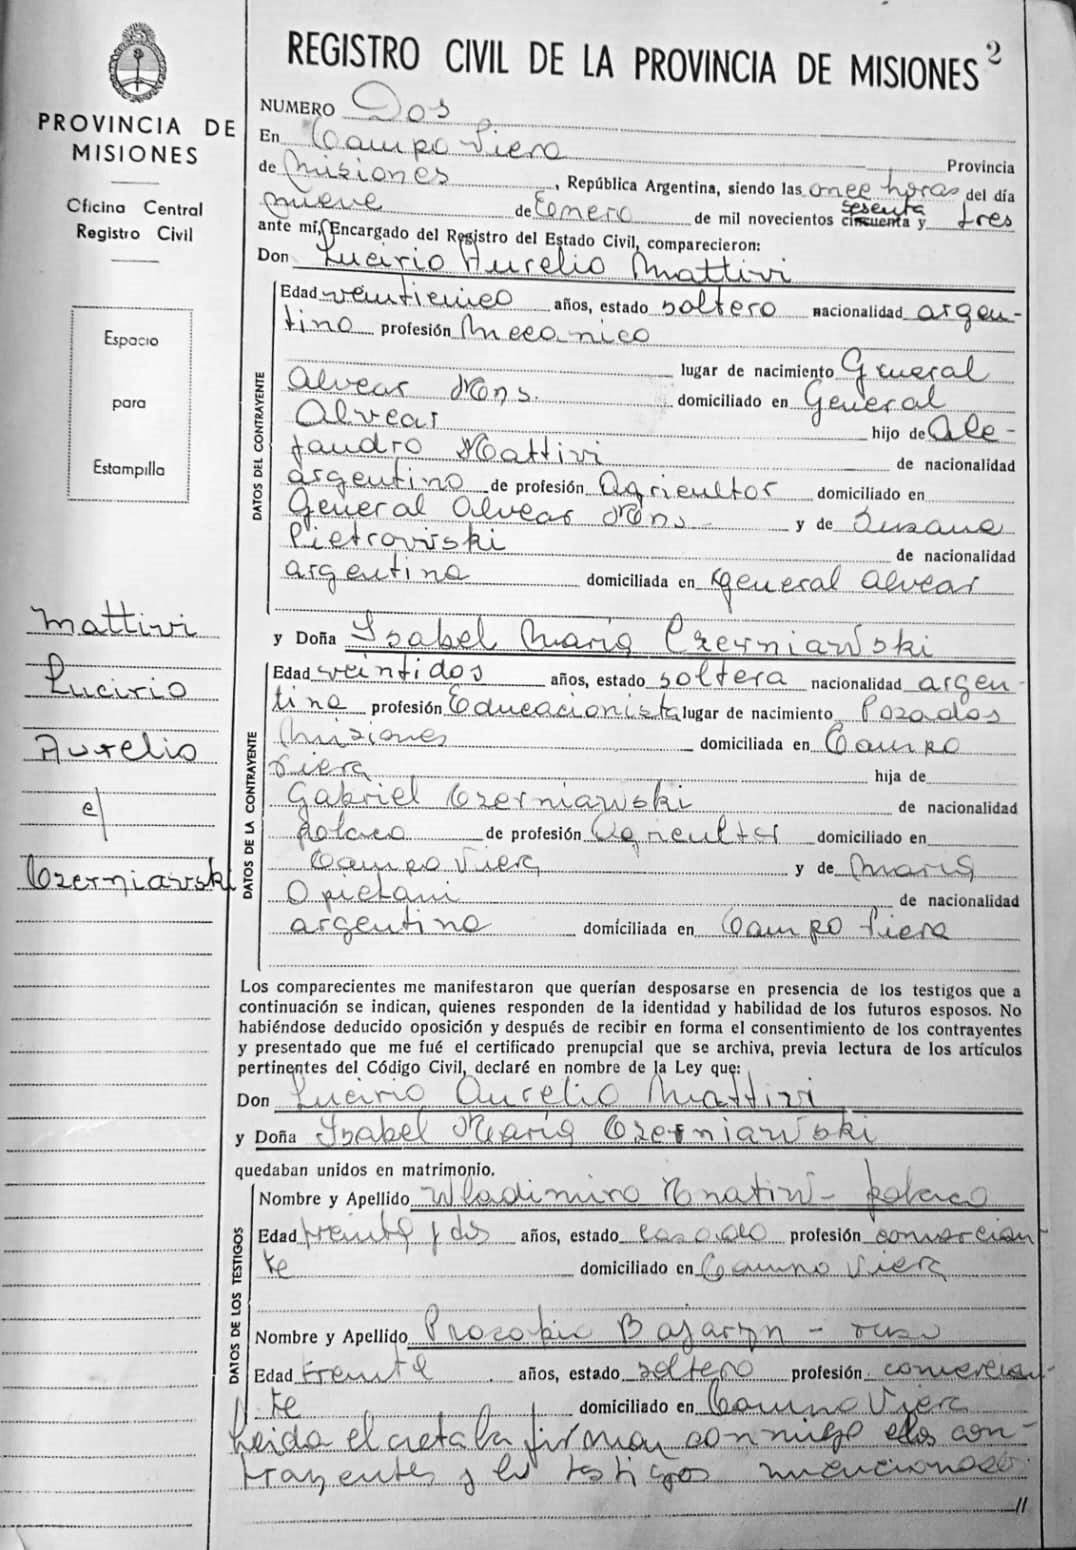 PROVINCIA DE
MISIONES
Oficina Central
Registro Civil
Espacio
para
Estampilla
Mattivi
Lucirio
Aurelio
c/
Czerniawski
REGISTRO CIVIL DE LA PROVINCIA DE MISIONES 2
NUMERO Dos
En Campo Viera Provincia
de Misiones, República Argentina, siendo las once horas del día
nueve de Enero de mil novecientos sesenta cincuenta y tres
ante mí, Encargado del Registro del Estado Civil, comparecieron:
Don Lucirio Aurelio Mattivi
DATOS DEL CONTRAYENTE
Edad veinticinco años, estado soltero nacionalidad argen-
tino profesión Mecanico
lugar de nacimiento General
Alvear Mns. domiciliado en General
Alvear hijo de Ale-
jandro Mattivi de nacionalidad
argentino de profesión Agricultor domiciliado en
General Alvear Mns y de Susana
Pietrowski de nacionalidad
argentina domiciliada en General Alvear
y Doña Isabel María Czerniawski
DATOS DE LA CONTRAYENTE
Edad veintidos años, estado soltera nacionalidad argen-
tina profesión Educacionista lugar de nacimiento Posadas
Misiones domiciliada en Campo
Viera hija de
Gabriel Czerniawski de nacionalidad
polaco de profesión Agricultor domiciliado en
Campo Viera y de María
Opietani de nacionalidad
argentina domiciliada en Campo Viera
Los comparecientes me manifestaron que querían desposarse en presencia de los testigos que a
continuación se indican, quienes responden de la identidad y habilidad de los futuros esposos. No
habiéndose deducido oposición y después de recibir en forma el consentimiento de los contrayentes
y presentado que me fué el certificado prenupcial que se archiva, previa lectura de los artículos
pertinentes del Código Civil, declaré en nombre de la Ley que:
Don Lucirio Aurelio Mattivi
y Doña Isabel María Czerniawski
quedaban unidos en matrimonio.
DATOS DE LOS TESTIGOS
Nombre y Apellido Wladimiro - polaco
Edad treinta y dos años, estado casado profesión comercian-
te domiciliado en Campo Viera
Nombre y Apellido - ruso
Edad treinta años, estado soltero profesión comercian-
te domiciliado en Campo Viera
Leida el acta la firman conmigo los con-
trayentes y los testigos mencionados
//